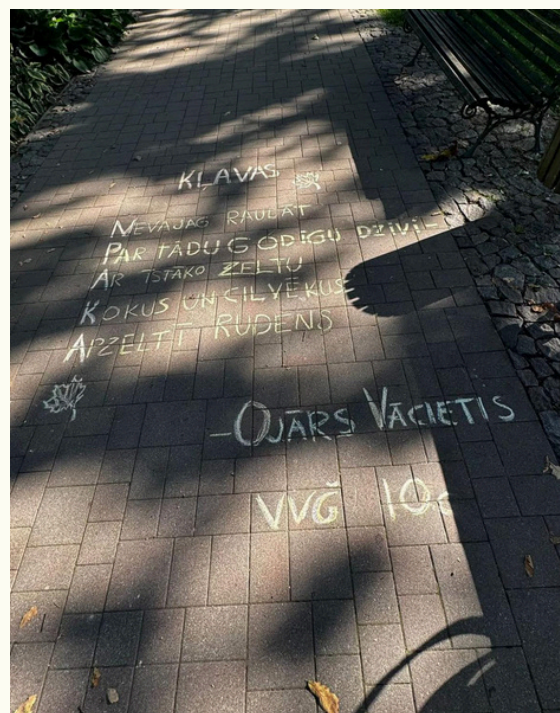 KĻAVAS
NEVAJAG RAUDĀT
PAR TĀDU GODĪGU DZĪVI–
AR ĪSTĀKO ZELTU
KOKUS UN CILVĒKUS
APZELTĪ RUDENS
–OJĀRS VĀCIETIS
VVĢ 10c